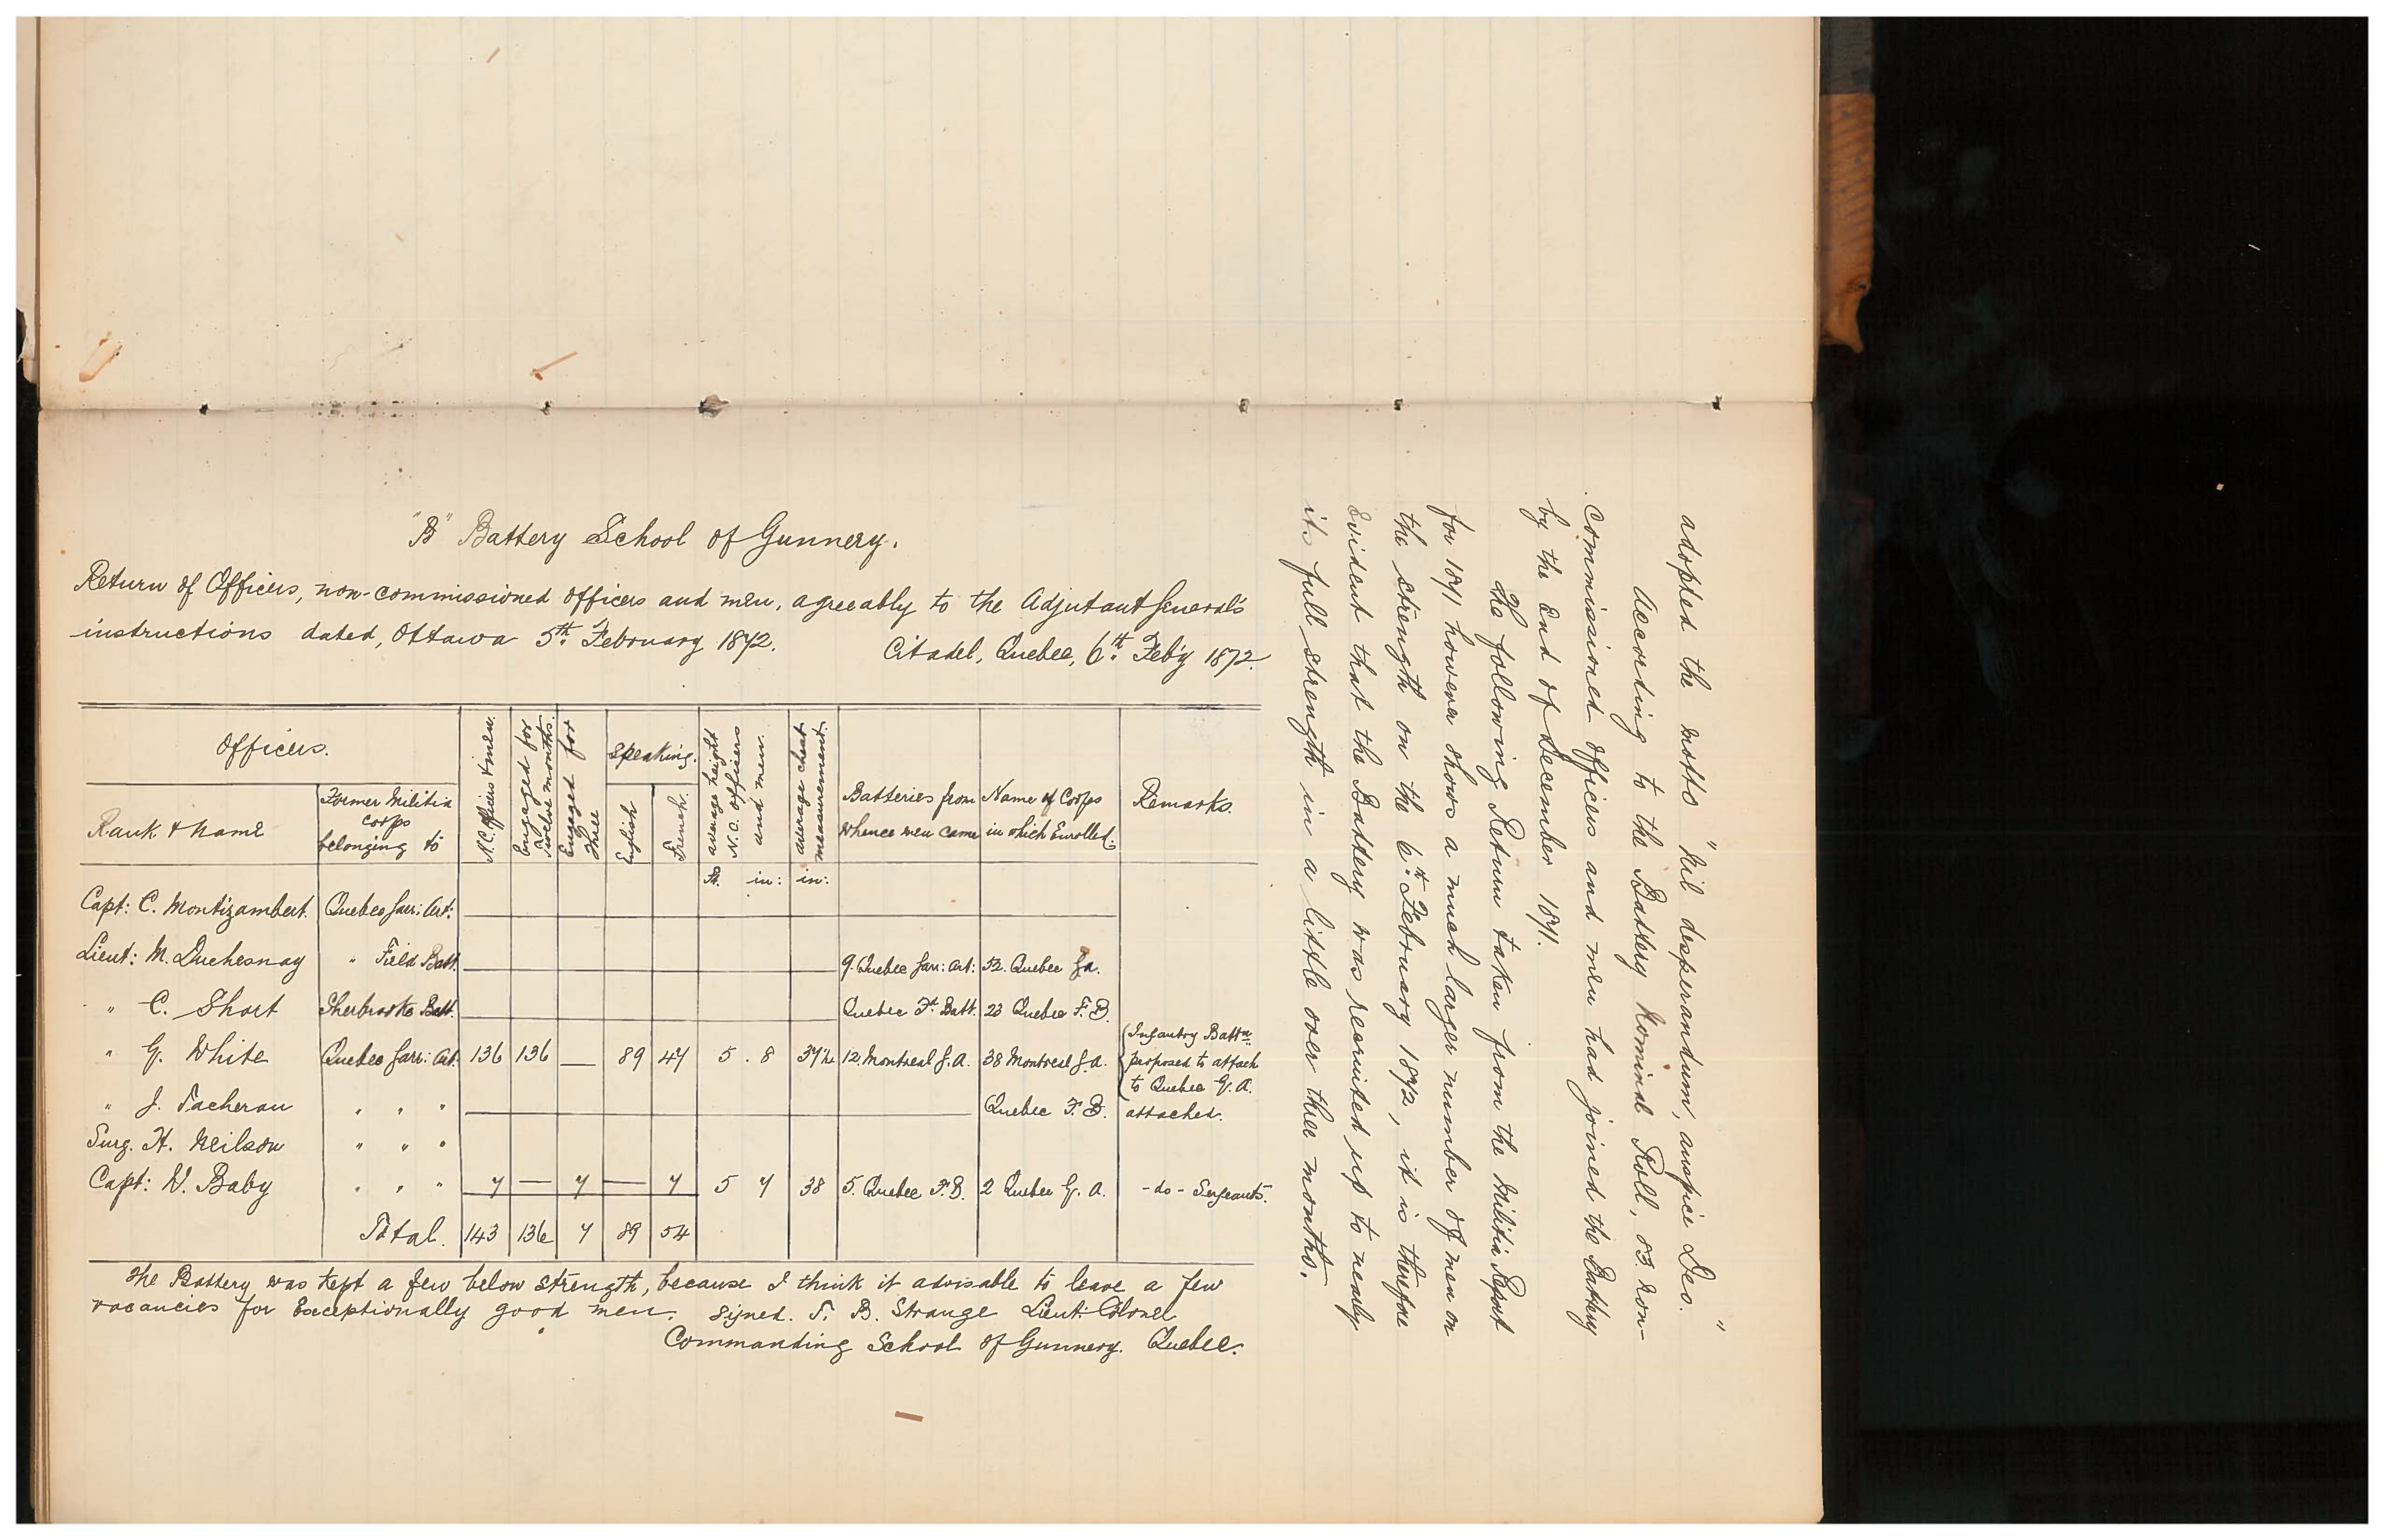 adopted the motto "Nil desperandum, auspice Deo."
According to the Battery Nominal Roll, 83. non-
commissioned officers and men had joined the Battery
by the end of December 1871.
The following Return taken from the Militia Report
for 1871 however shows a much larger number of men on
the strength on the 6th February 1872, it is therefore
evident that the Battery was recruited up to nearly
its full strength in a little over three months.
"B" Battery School of Gunnery.
Return of Officers, non-commissioned officers and men, agreeably to the Adjutant General's
instructions dated, Ottawa 5th February 1872.
Citadel, Quebec, 6th Feb'y 1872.
Officers.
Rank & Name
Former Militia
corps
belonging to
N.C. Officers & men.
Engaged for
Twelve months.
Engaged for
Three
Speaking.
English
French.
average height
N.C. Officers
and men.
average chest
measurement.
Batteries from
whence men came
Name of Corps
in which Enrolled.
Remarks.
ft. in: in:
Capt: C. Montizambert. Quebec Garr: Art:
Lieut: M. Duchesnay " Field Batt. 9. Quebec Garr: Art: 52. Quebec G.A.
" C. Short Sherbrooke Batt. Quebec Fd. Batt. 23 Quebec F.B.
" G. White Quebec Garr: Art. 136 136 — 89 47 5 . 8 37½ 12. Montreal G.A. 38 Montreal G.A. Infantry Battn
proposed to attach
to Quebec G.A.
" J. Tacherau " " " Quebec F.B. attached.
Surg. H. Neilson " " "
Capt: W. Baby " " " 7 — 7 — 7 5 7 38 5. Quebec F.B. 2 Quebec G.A. -do- Sergeants.
Total. 143 136 7 89 54
The Battery was kept a few below strength, because I think it advisable to leave a few
vacancies for exceptionally good men. signed. T. B. Strange Lieut: Colonel
Commanding School of Gunnery. Quebec.